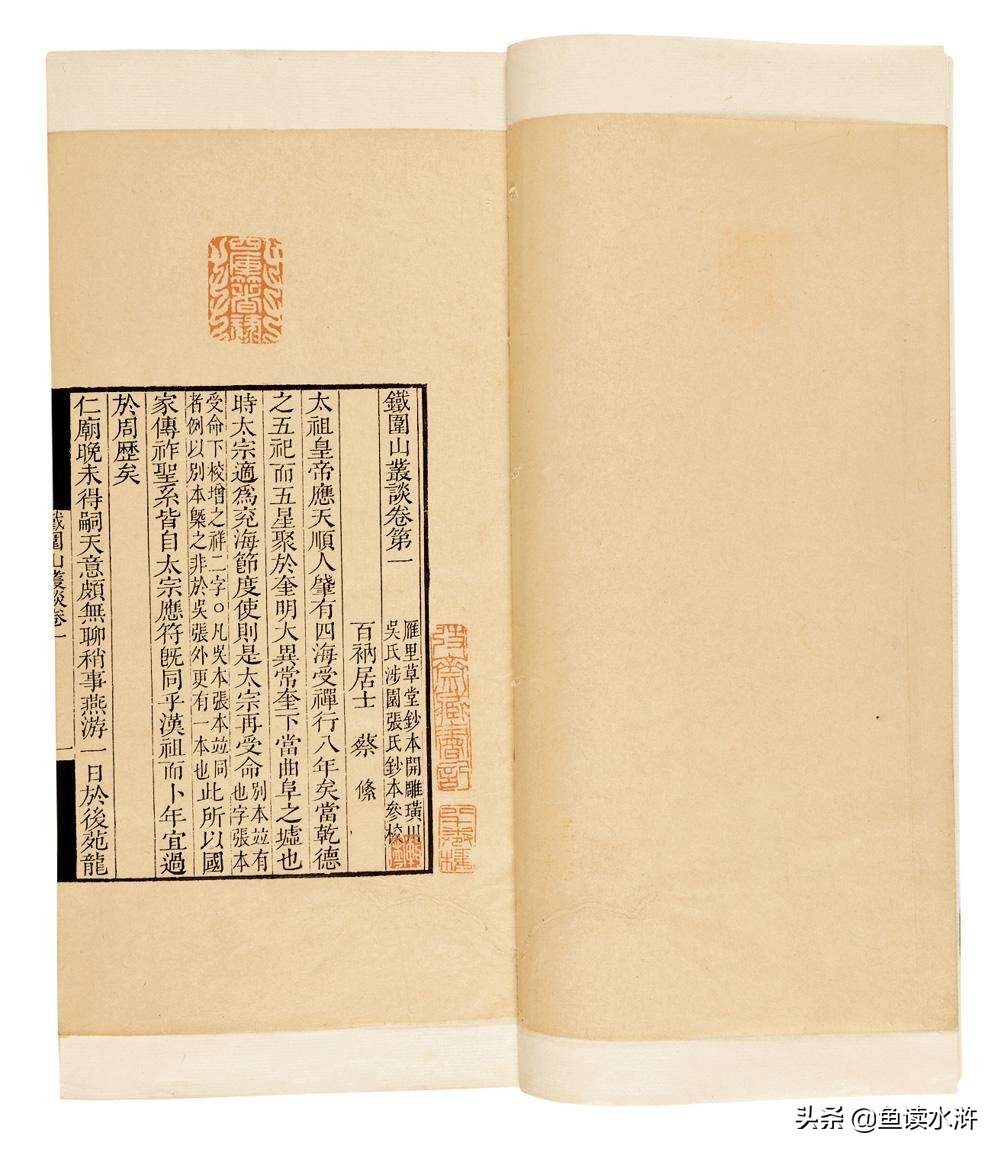 鐵圍山叢談卷第一
雁里草堂鈔本開雕璜川
吳氏涉園張氏鈔本參校
百衲居士 蔡 絛
太祖皇帝應天順人肇有四海受禪行八年矣當乾德
之五祀而五星聚於奎明大異常奎下當曲阜之墟也
時太宗適爲兗海節度使則是太宗再受命別本竝有也字張本
受命下校增之祥二字〇凡吳本張本竝同者例以別本槩之非於吳張外更有一本也此所以國
家傳祚聖系皆自太宗應符旣同乎漢祖而卜年宜過
於周歷矣
仁廟晚未得嗣天意頗無聊稍事燕游一日於後苑龍
鐵圍山叢談卷一
一
头条 @鱼读水浒